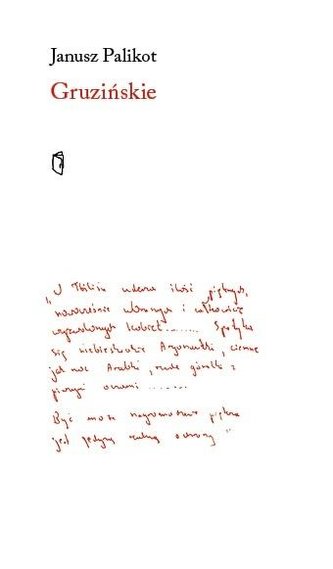 Janusz Palikot
Gruzińskie
„W Tbilisi uderza ilość pięknych,
nowocześnie ubranych i całkowicie
wyzwolonych kobiet......... Spotyka
się niebieskookie Argonautki, ciemne
jak noc Arabki, rude góralki z
piwnymi oczami .........
Być może nagromadzenie piękna
jest jedyną realną ochroną"